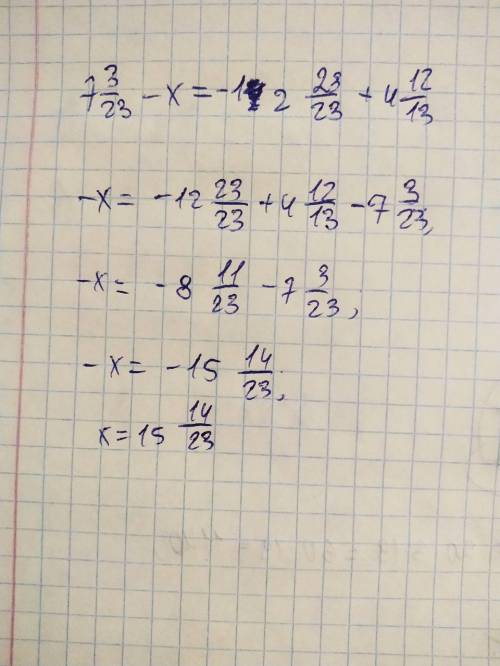 7 3/23 - x = -12 23/23 + 4 12/13
-x = -12 23/23 + 4 12/13 - 7 3/23;
-x = -8 11/23 - 7 3/23;
-x = -15 14/23;
x = 15 14/23